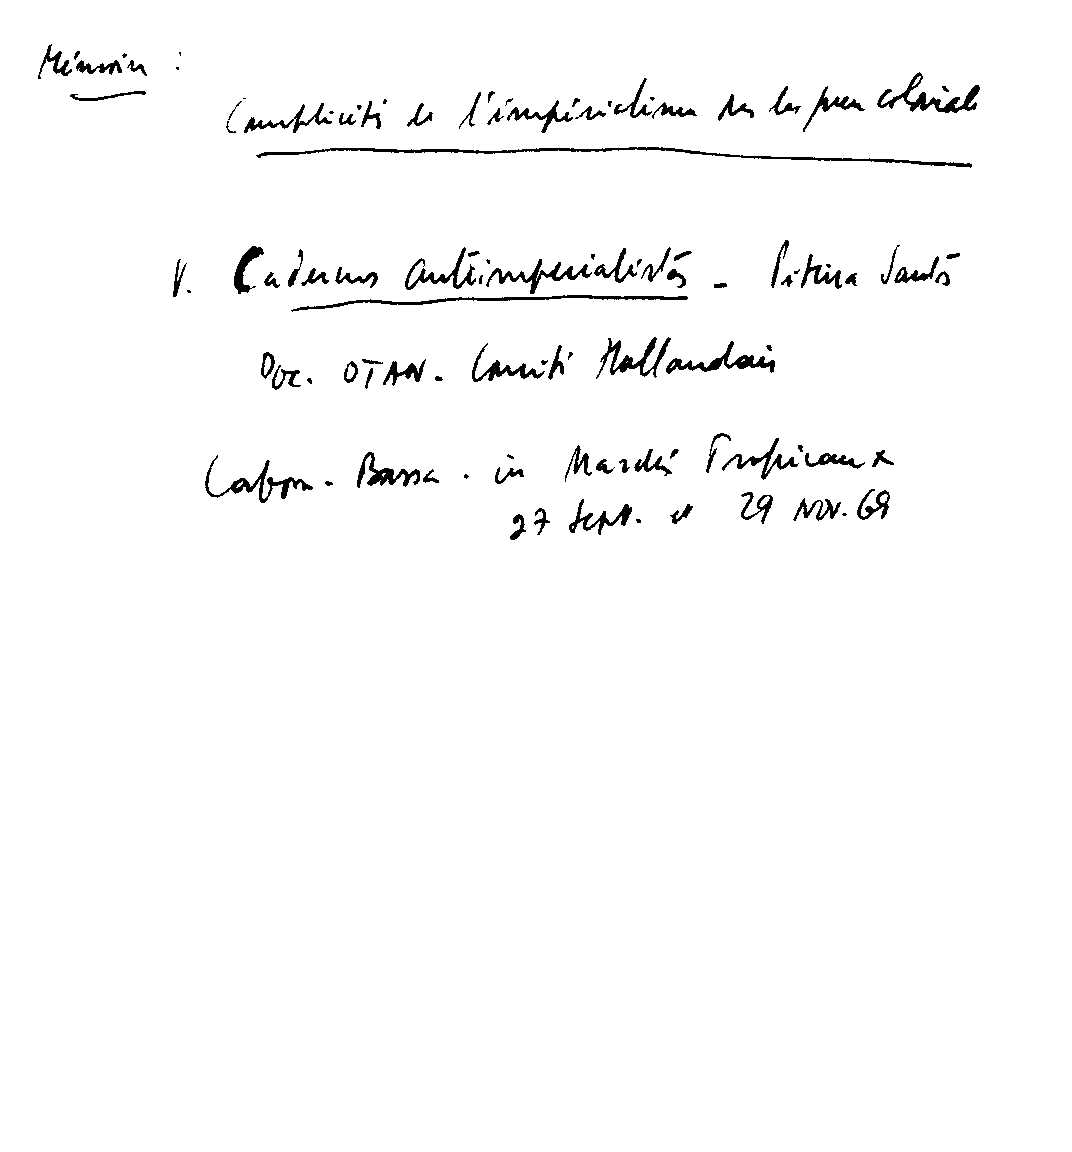 Mémoire :
Complicité de l'impérialisme dans la guerre coloniale
V. Cadernos Antiimperialistas - Piteira Santos
Doc. OTAN. Comité Hollandais
Cabora - Bassa. in Marchés Tropicaux
27 Sept. et 29 Nov. 69